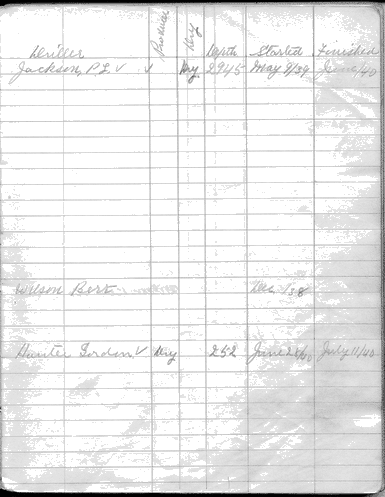 Driller Producer Dry Depth Started Finished
Jackson, P L √ √ Dry 2945 May 9/39 June/40
Wilson Bert Dec /38
Hunter Gordon √ Dry 252 June 28/40 July 11/40